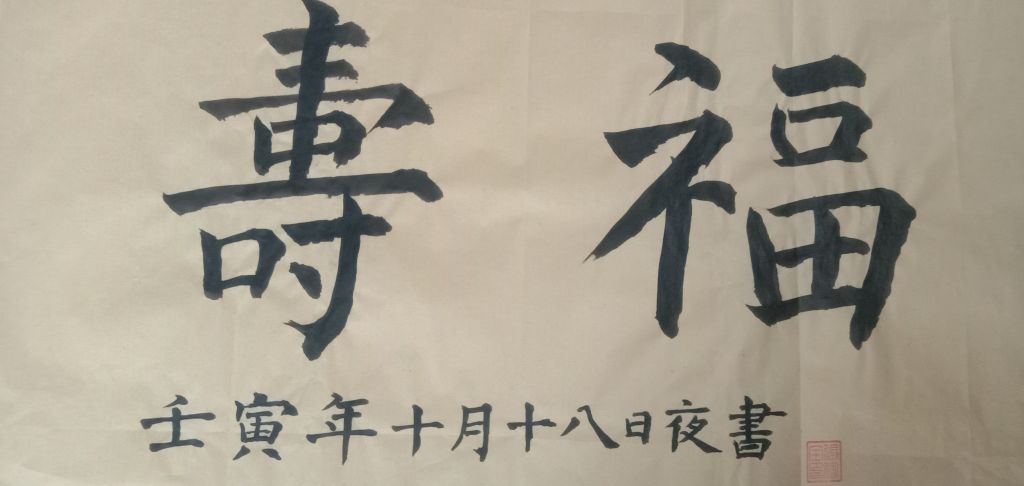 壽福
壬寅年十月十八日夜書